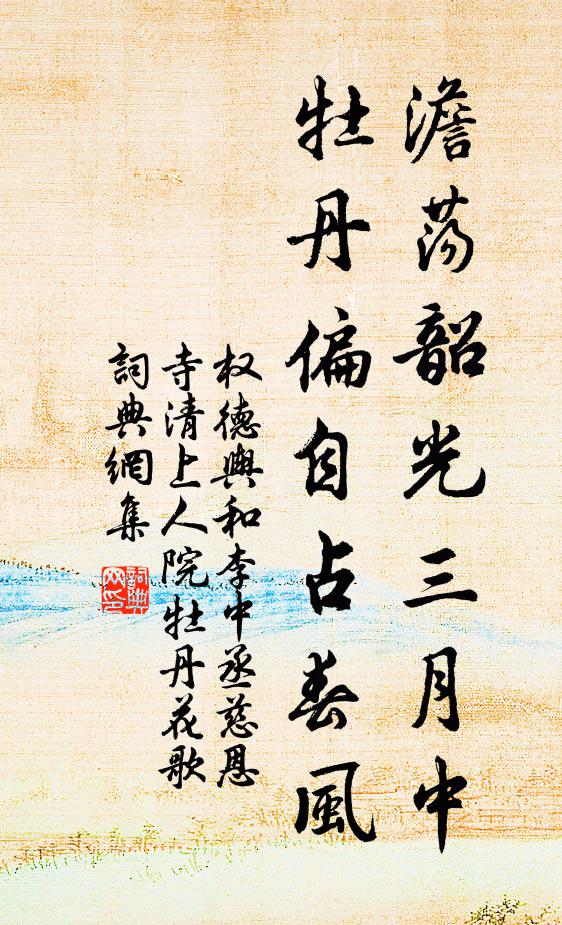 澹荡韶光三月中
牡丹偏自占春風
权德輿和李中丞慈恩
寺清上人院牡丹花歌
詞典網集
詞典